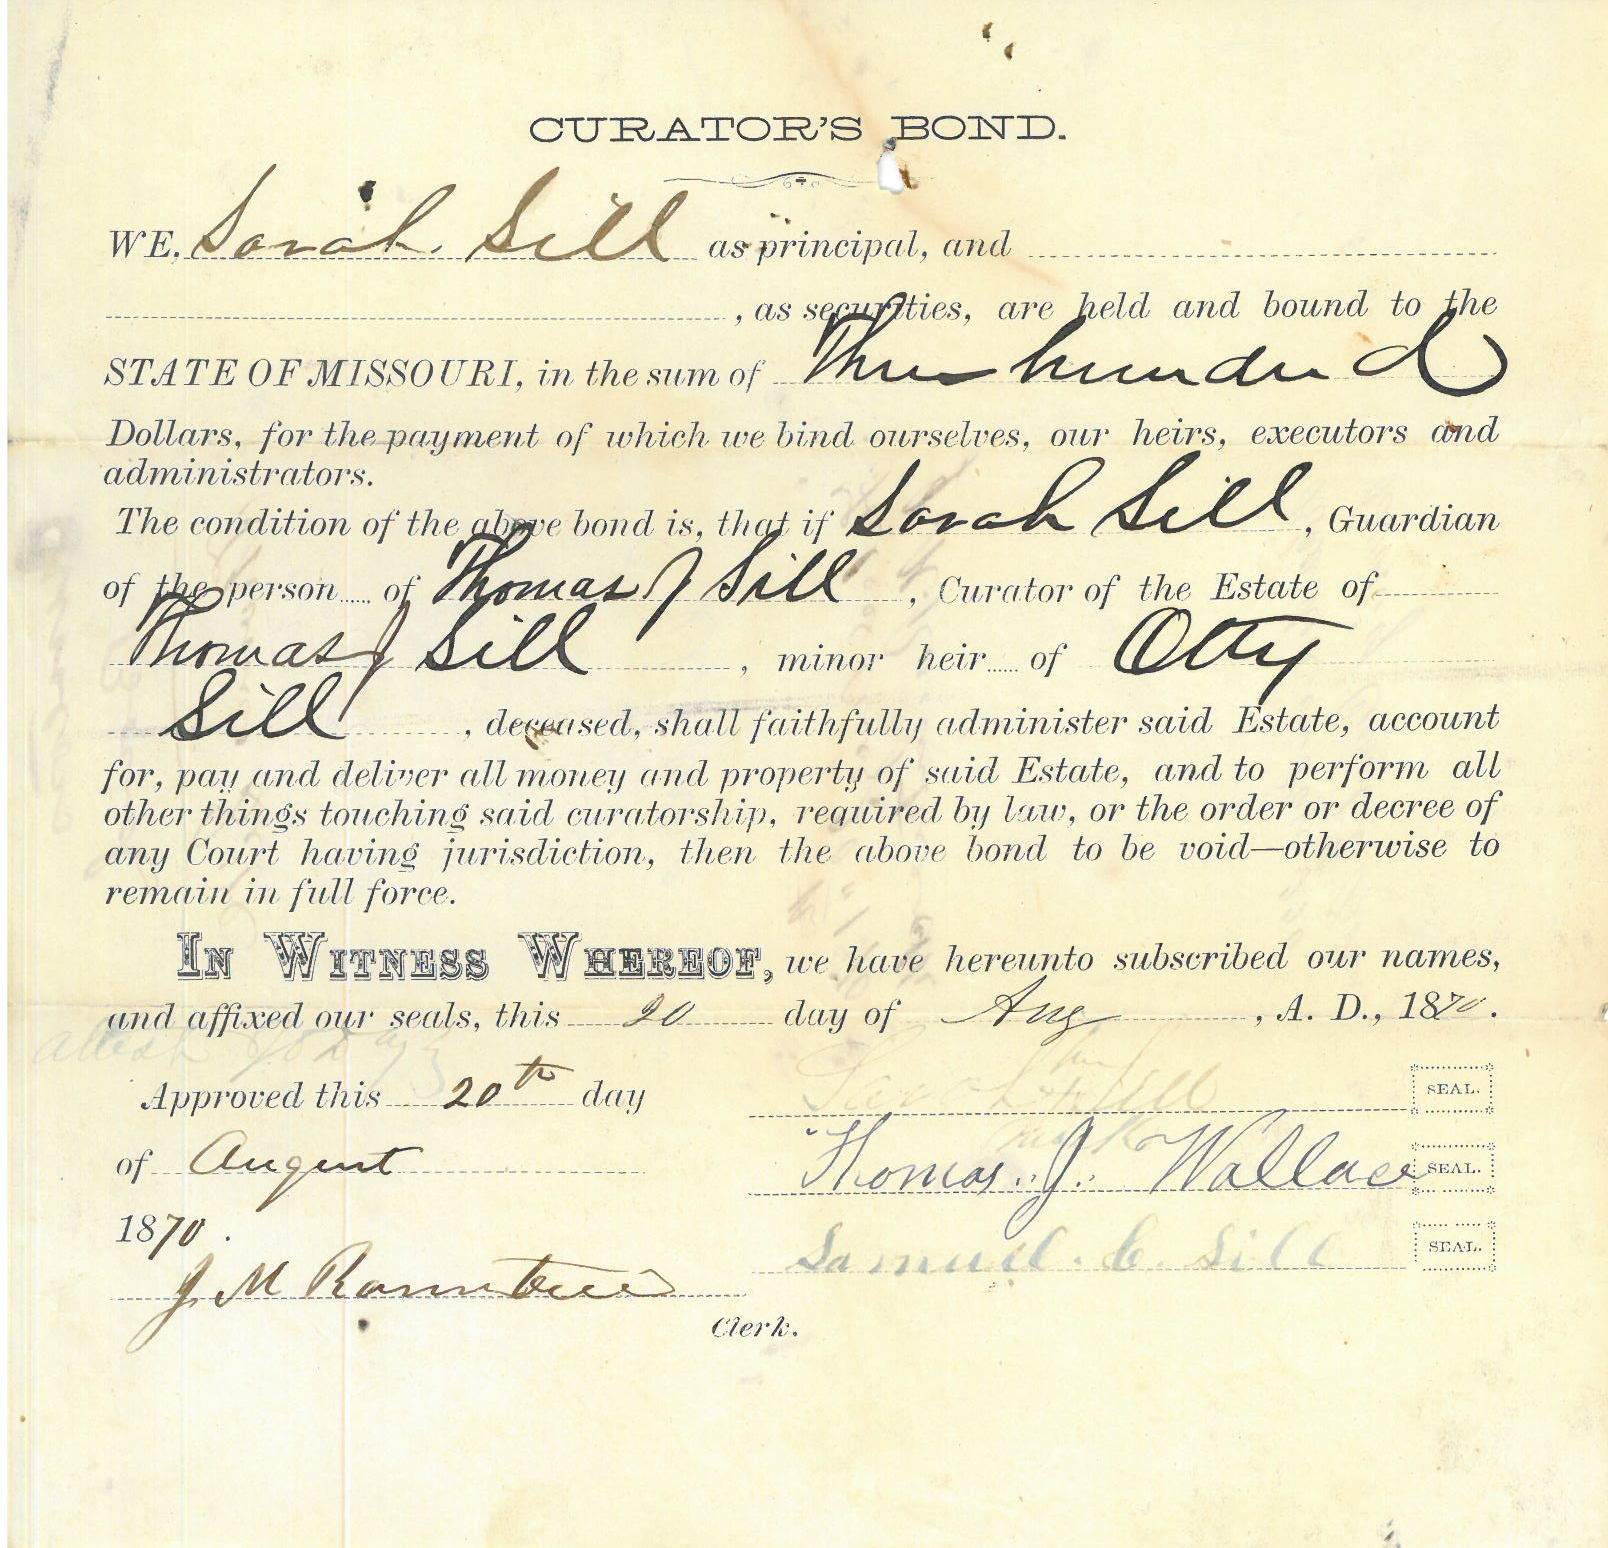 CURATOR'S BOND.
WE, Sarah Sill as principal, and
, as securities, are held and bound to the
STATE OF MISSOURI, in the sum of Three hundred
Dollars, for the payment of which we bind ourselves, our heirs, executors and
administrators.
The condition of the above bond is, that if Sarah Sill, Guardian
of the person of Thomas J Sill, Curator of the Estate of
Thomas J Sill, minor heir of Otty
Sill, deceased, shall faithfully administer said Estate, account
for, pay and deliver all money and property of said Estate, and to perform all
other things touching said curatorship, required by law, or the order or decree of
any Court having jurisdiction, then the above bond to be void—otherwise to
remain in full force.
IN WITNESS WHEREOF, we have hereunto subscribed our names,
and affixed our seals, this 20 day of Aug, A. D., 1870.
Approved this 20th day
of August
1870.
J M Rountree
Clerk.
her
Sarah + Sill SEAL.
mark
Thomas. J. Wallace SEAL.
Samuel. C. Sill SEAL.